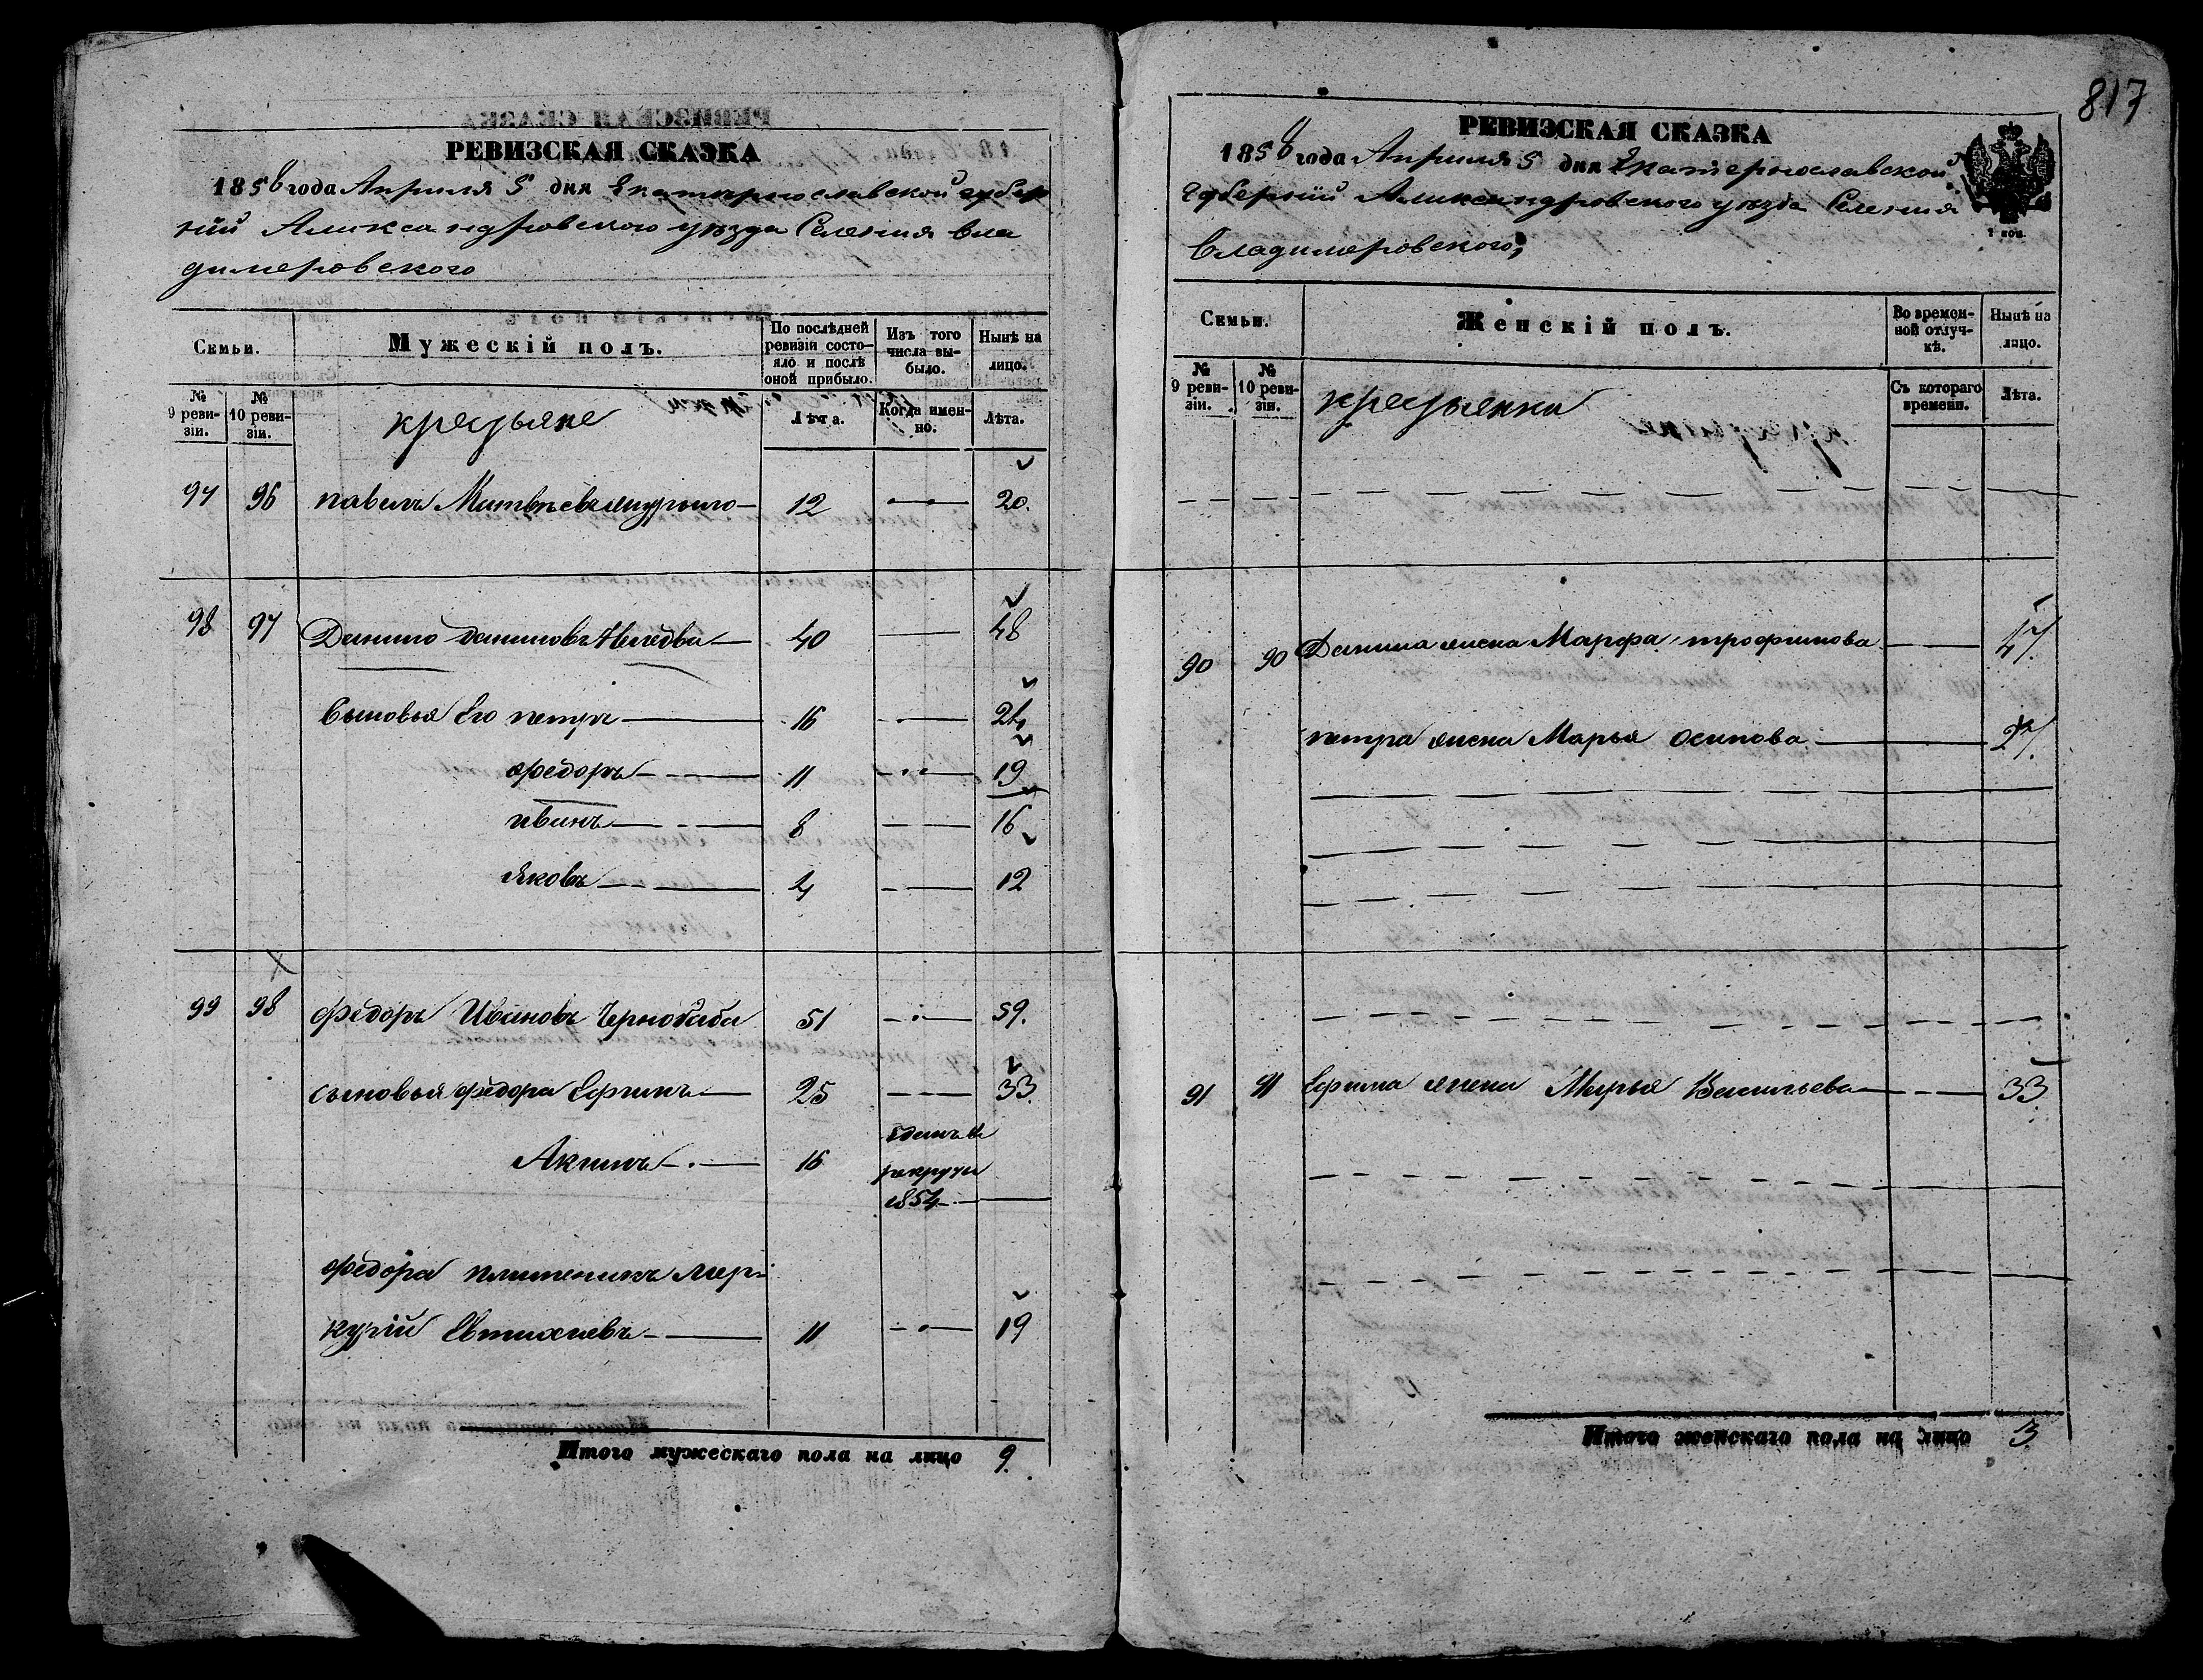 817
РЕВИЗСКАЯ СКАЗКА
1858 года Априля 5 дня Екатеринославской губер
нии Александровского уезда Селения Вла
димеровского
Семьи.
Мужескій полъ.
По послѣдней ревизіи состояло и послѣ оной прибыло.
Изъ того числа выбыло.
Нынѣ на лицо.
№ 9 ревизіи.
№ 10 ревизіи.
крестьяне
Лѣта.
Когда именно.
Лѣта.
97 96 павелъ Матвѣевъ 12 20.
98 97 Данило Даниловъ 40 48
Сыновья Его петръ 16 24
федоръ 11 19
иванъ 8 16
Яковъ 4 12
99 98 федоръ Ивановъ Чернобаба 51 59.
сыновья федора Ефимъ 25 33
Акимъ 16 отданъ въ рекруты 1854
федора племеникъ Мер-
курій Евтихиевъ 11 19
Итого мужескаго пола на лицо 9.
РЕВИЗСКАЯ СКАЗКА
1858 года Априля 5 дня Екатеринославской
Губерніи Александровского уезда Селения
Владимеровского,
2 коп.
Семьи.
Женскій полъ.
Во временной отлучкѣ.
Нынѣ на лицо.
№ 9 ревизіи.
№ 10 ревизіи.
крестьянки
Съ котораго времени.
Лѣта.
90 90 Данила жена Марфа трофимова 47.
петра жена Марья осипова 27.
91 91 Ефима жена Марья Васильева 33
Итого женскаго пола на лицо 3.